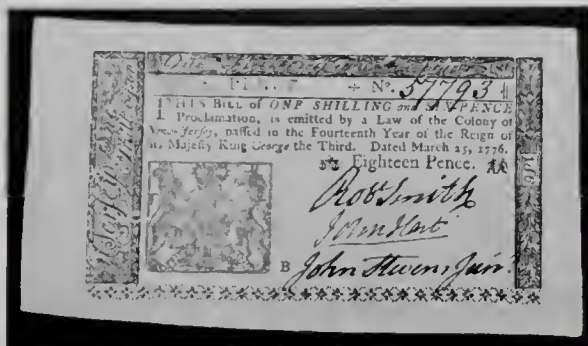 One Shilling and Six pence
Nº. 57793
THIS BILL of ONE SHILLING and SIX PENCE
Proclamation, is emitted by a Law of the Colony of
New-Jersey, paſſed in the Fourteenth Year of the Reign of
his Majeſty King George the Third. Dated March 25, 1776.
Eighteen Pence.
Robt Smith
John Hart
B John Stevens Junr
Jerſey